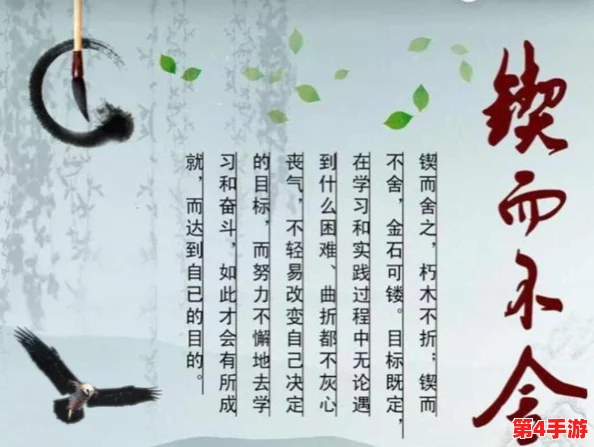 锲而不舍
锲而舍之，朽木不折；锲而
不舍，金石可镂。目标既定，
在学习和实践过程中无论遇
到什么困难、曲折都不灰心
丧气，不轻易改变自己决定
的目标，而努力不懈地去学
习和奋斗，如此才会有所成
就，而达到自己的目的。
第4手游